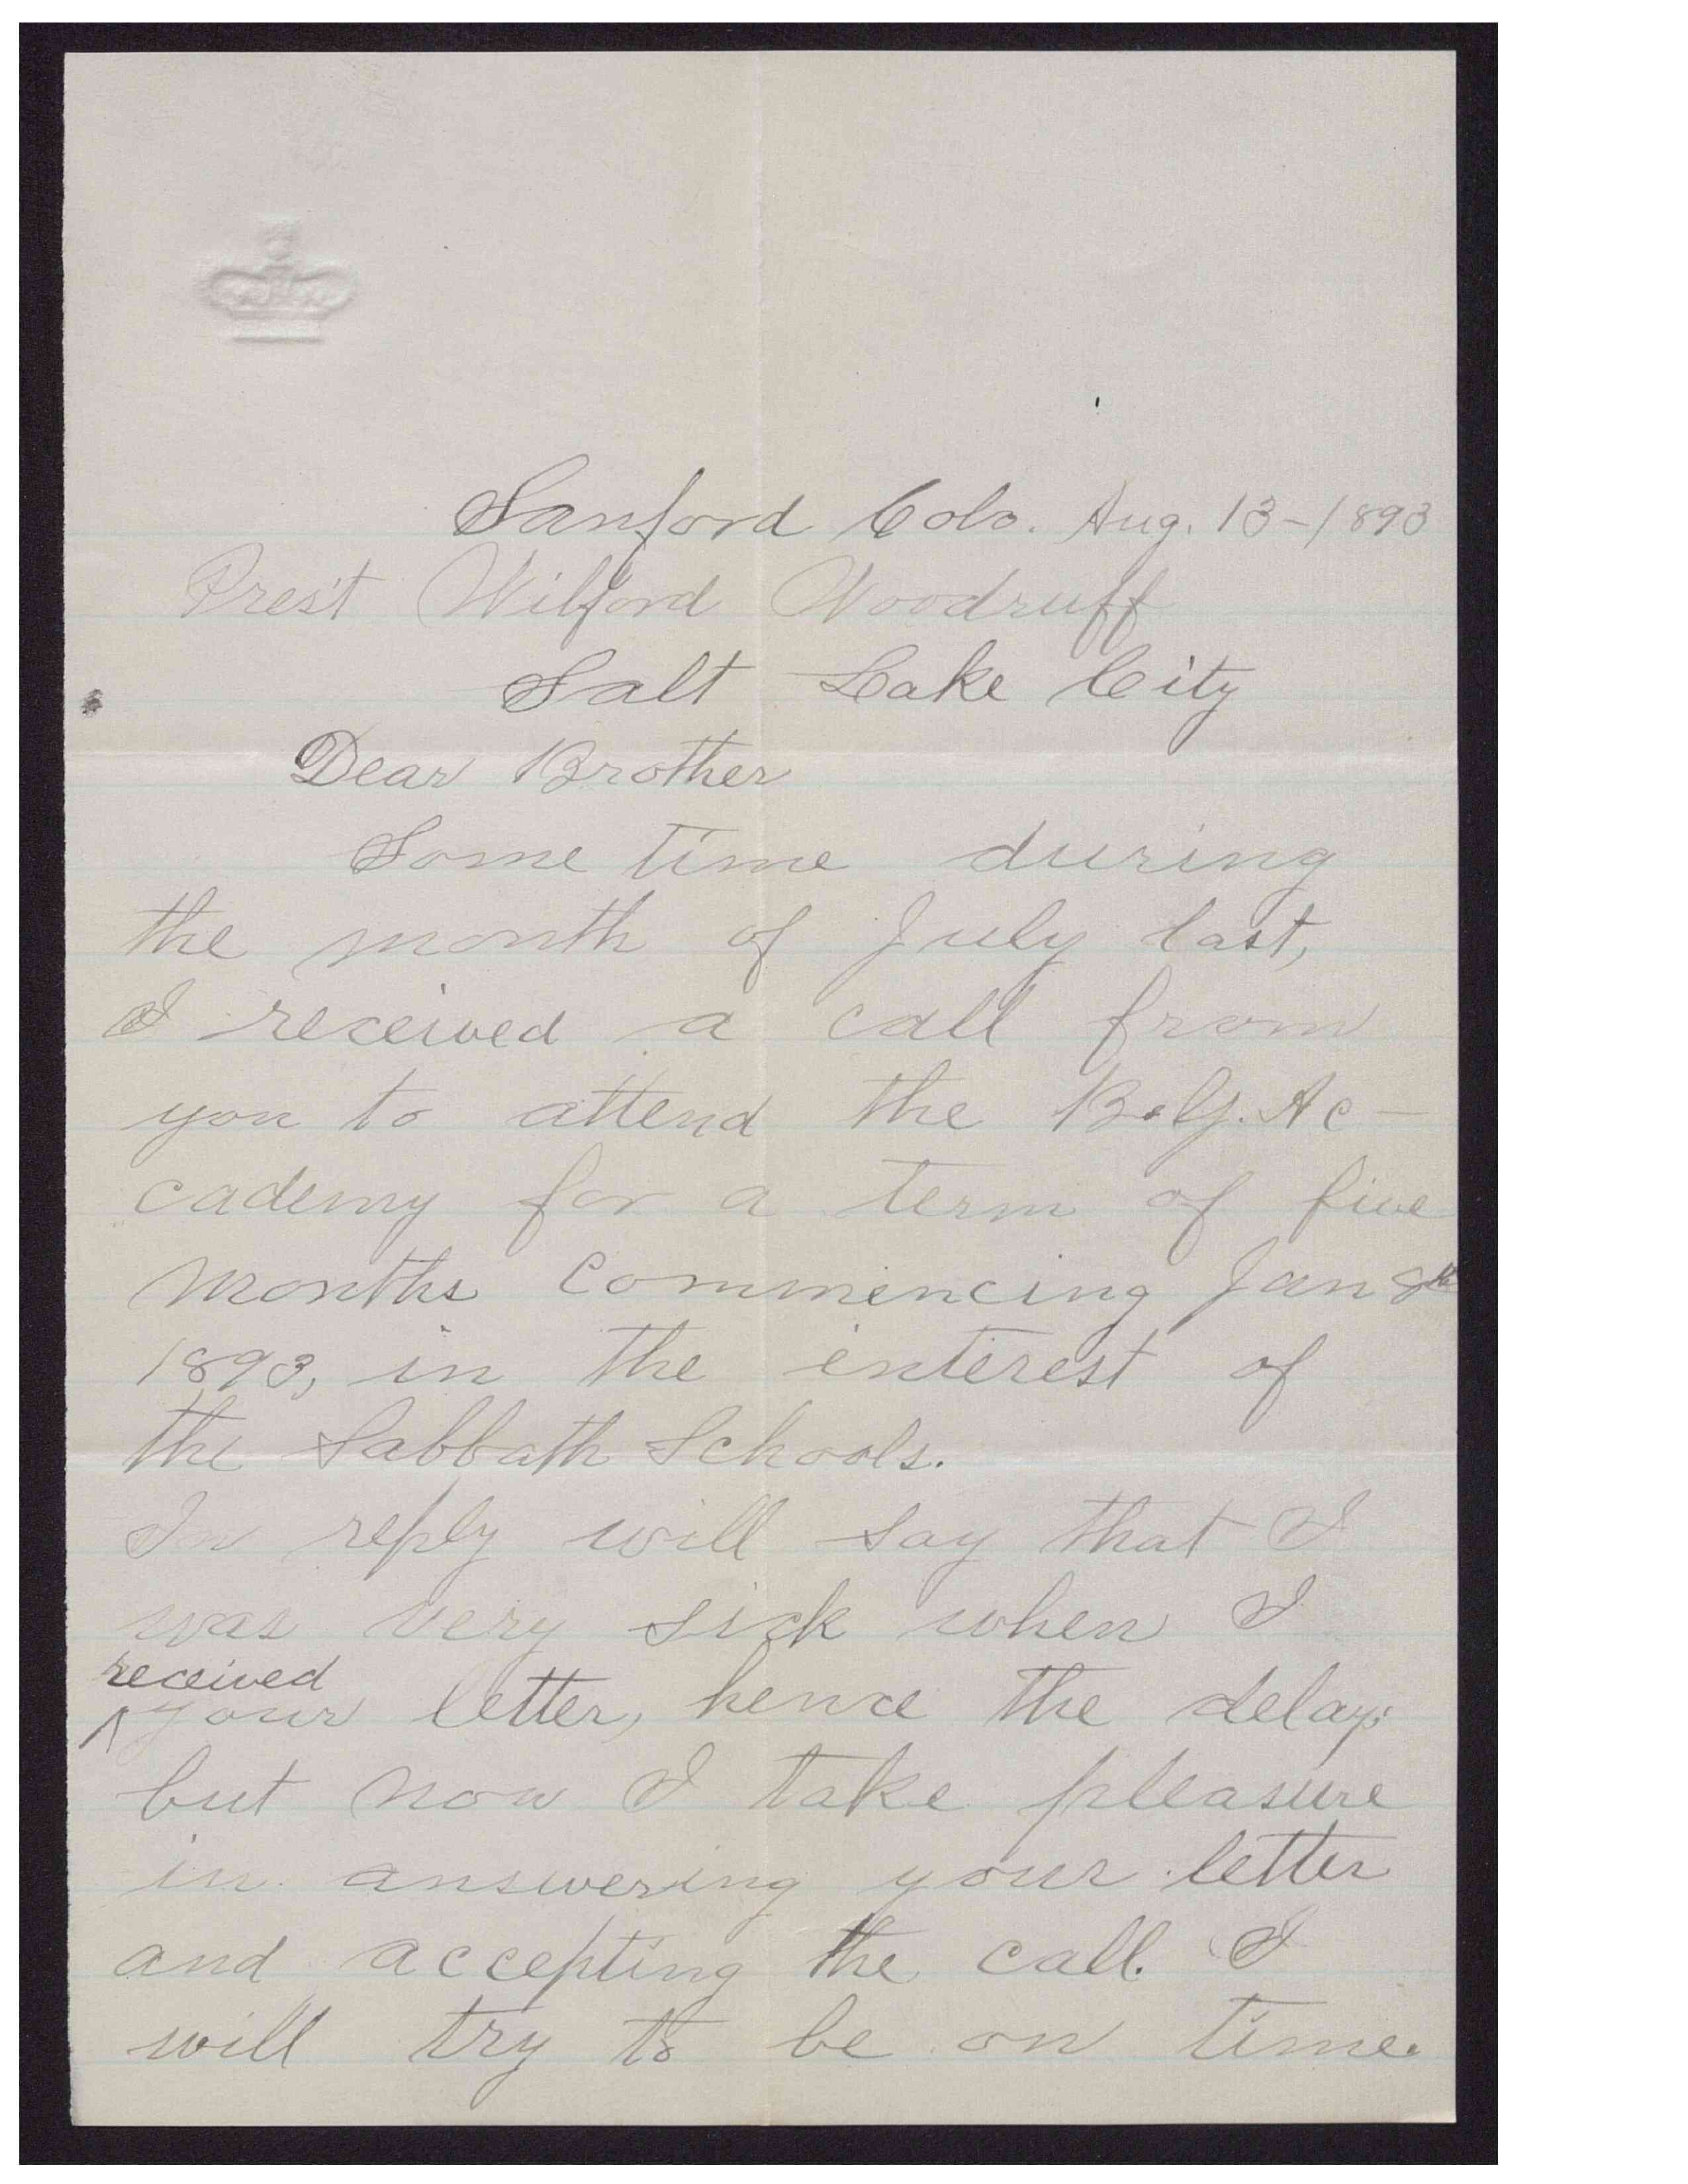 Sanford Colo. Aug. 13-1893
Prest Wilford Woodruff
Salt Lake City
Dear Brother
Some time during
the month of July last,
I received a call from
you to attend the B.Y. Ac-
cademy for a term of five
months commencing Jan 8th
1893, in the interest of
the Sabbath Schools.
In reply will say that I
was very sick when I
received
^ your letter, hence the delay;
but now I take pleasure
in answering your letter
and accepting the call. I
will try to be on time.